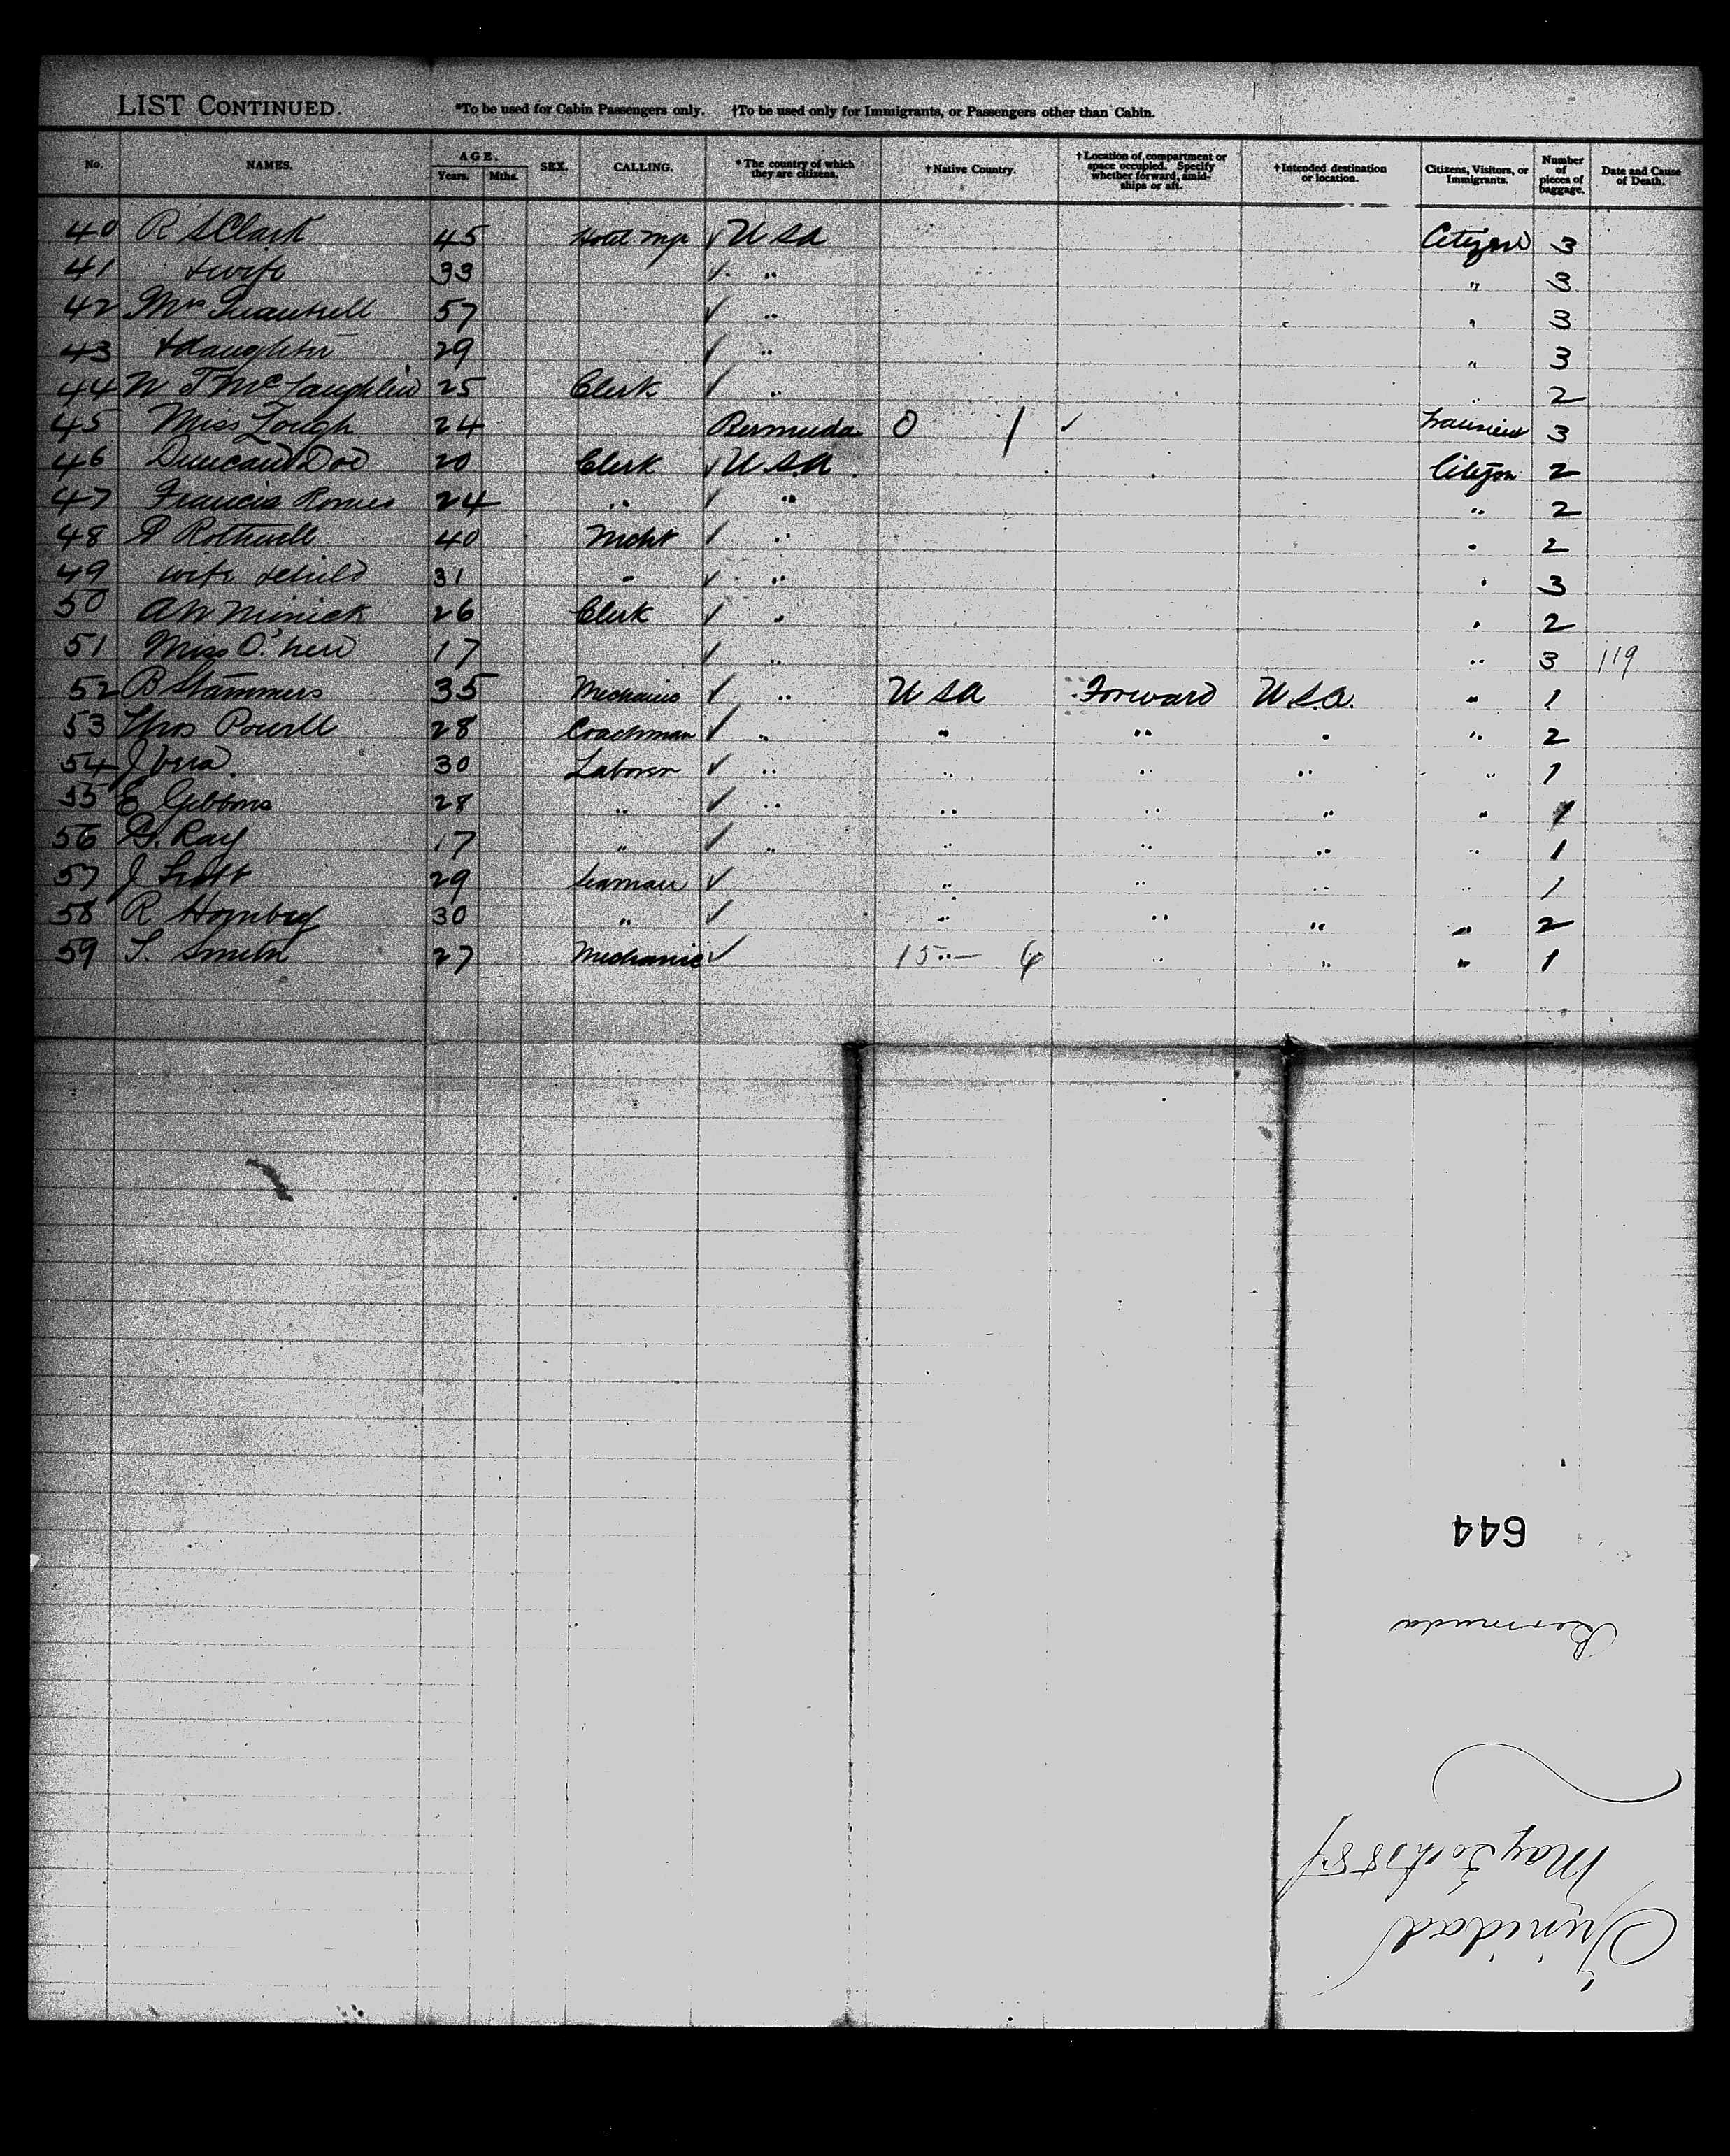 LIST CONTINUED. *To be used for Cabin Passengers only. †To be used only for Immigrants, or Passengers other than Cabin.
No. NAMES. AGE. Years. Mths. SEX. CALLING. *The country of which they are citizens. †Native Country. †Location of compartment or space occupied. Specify whether forward, amidships or aft. †Intended destination or location. Citizens, Visitors, or Immigrants. Number of pieces of baggage. Date and Cause of Death.
40 R S Clark 45 Hotel Mgr ✓ USA Citizen 3
41 & wife 33 ✓ " " 3
42 Mrs 57 ✓ " " 3
43 & daughter 29 ✓ " " 3
44 W T McLaughlin 25 Clerk ✓ " " 2
45 Miss Tough 24 Bermuda 0 1 ✓ Transient 3
46 Duncan Dod 20 Clerk ✓ U.S.A Citizen 2
47 Francis 24 " ✓ " " 2
48 Rothwell 40 Mcht ✓ " " 2
49 wife & child 31 " ✓ " " 3
50 A W Minick 26 Clerk ✓ " " 2
51 Miss O'Neil 17 ✓ " " 3 119
52 B Stammers 35 Mechanic ✓ " USA Forward U.S.A. " 1
53 Thos Powell 28 Coachman ✓ " " " " " 2
54 J 30 Laborer ✓ " " " " " 1
55 E Gibbons 28 " ✓ " " " " " 1
56 G. Ray 17 " ✓ " " " " " 1
57 J 29 Seaman ✓ " " " " 1
58 R Hornby 30 " ✓ " " " " 2
59 Smith 27 Mechanic ✓ 15 " — 6 " " " 1
644
Bermuda
Trinidad
May 30th 1887